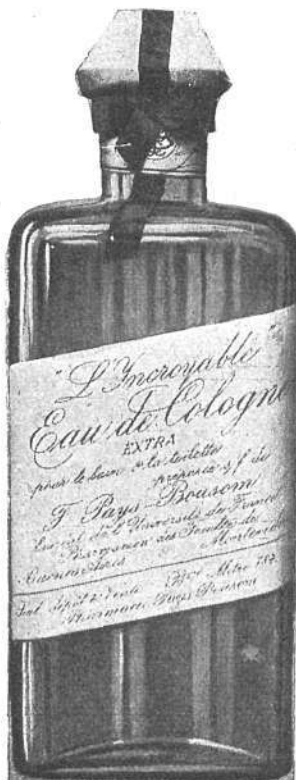 "L'Incroyable"
Eau de Cologne
EXTRA
pour le bain & la toilette
préparée
F. Pays-Bousom
de l'Université de France
Pharmacien des Facultés de
Buenos Aires Montevideo
Seul dépôt & vente
Pharmacie Pays Bousom